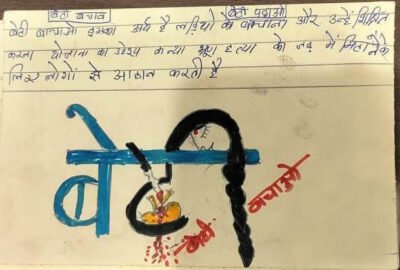 बेटी बचाव बेटी पढ़ाओ
बेटी बाचाओ इसका अर्थ है लड़ियो के बचाना और उन्हें शिक्षित
करना योजाना का उद्देश्य कन्या भ्रूण हत्या को जड़ में मिटाने के
लिए लोगों से आहान करती है
बेटी
बेटी बचाओ